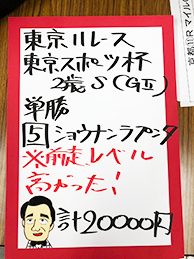 東京11レース
東京スポーツ杯
2歳S(GⅡ)
単勝
5 ショウナンラプンタ
※前走レベル
高かった!
計20000円
京都11R マイル